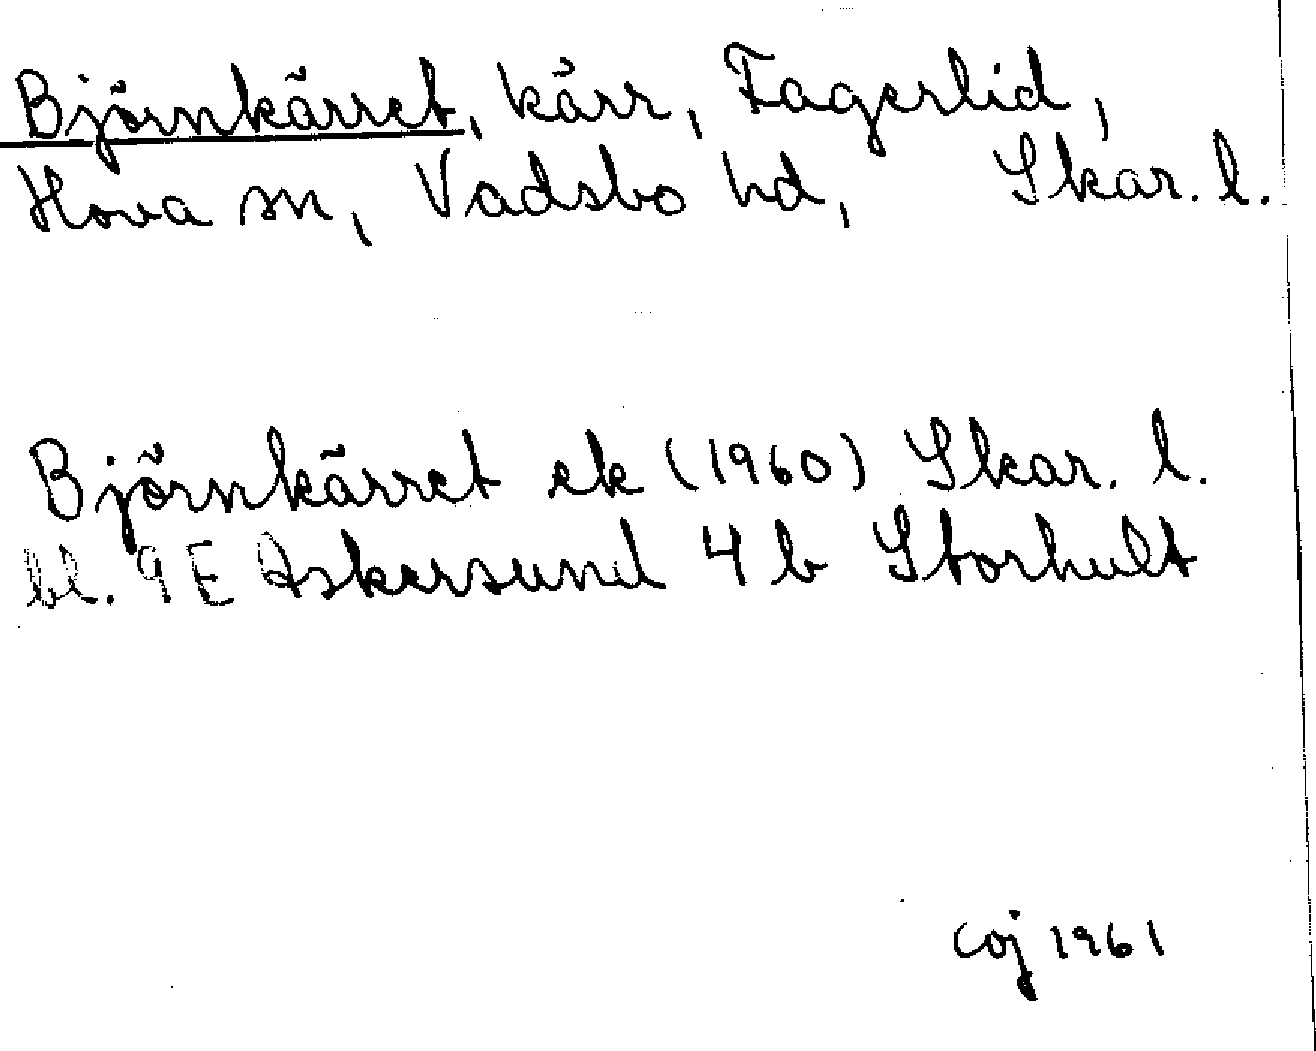 Björnkärret, kärr, Fagerlid,
Hova sn, Vadsbo hd, Skar. l.
Björnkärret ek (1960) Skar. l.
bl. 9E Askersund 4 b Storhult
Coj 1961